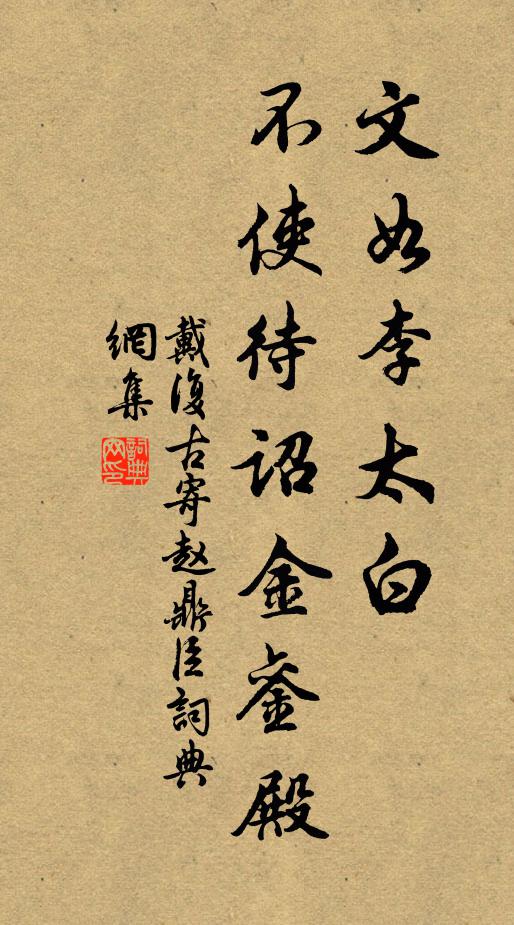 文如李太白
不使待詔金銮殿
戴復古寄赵鼎臣詞典
網集
詞典
网印